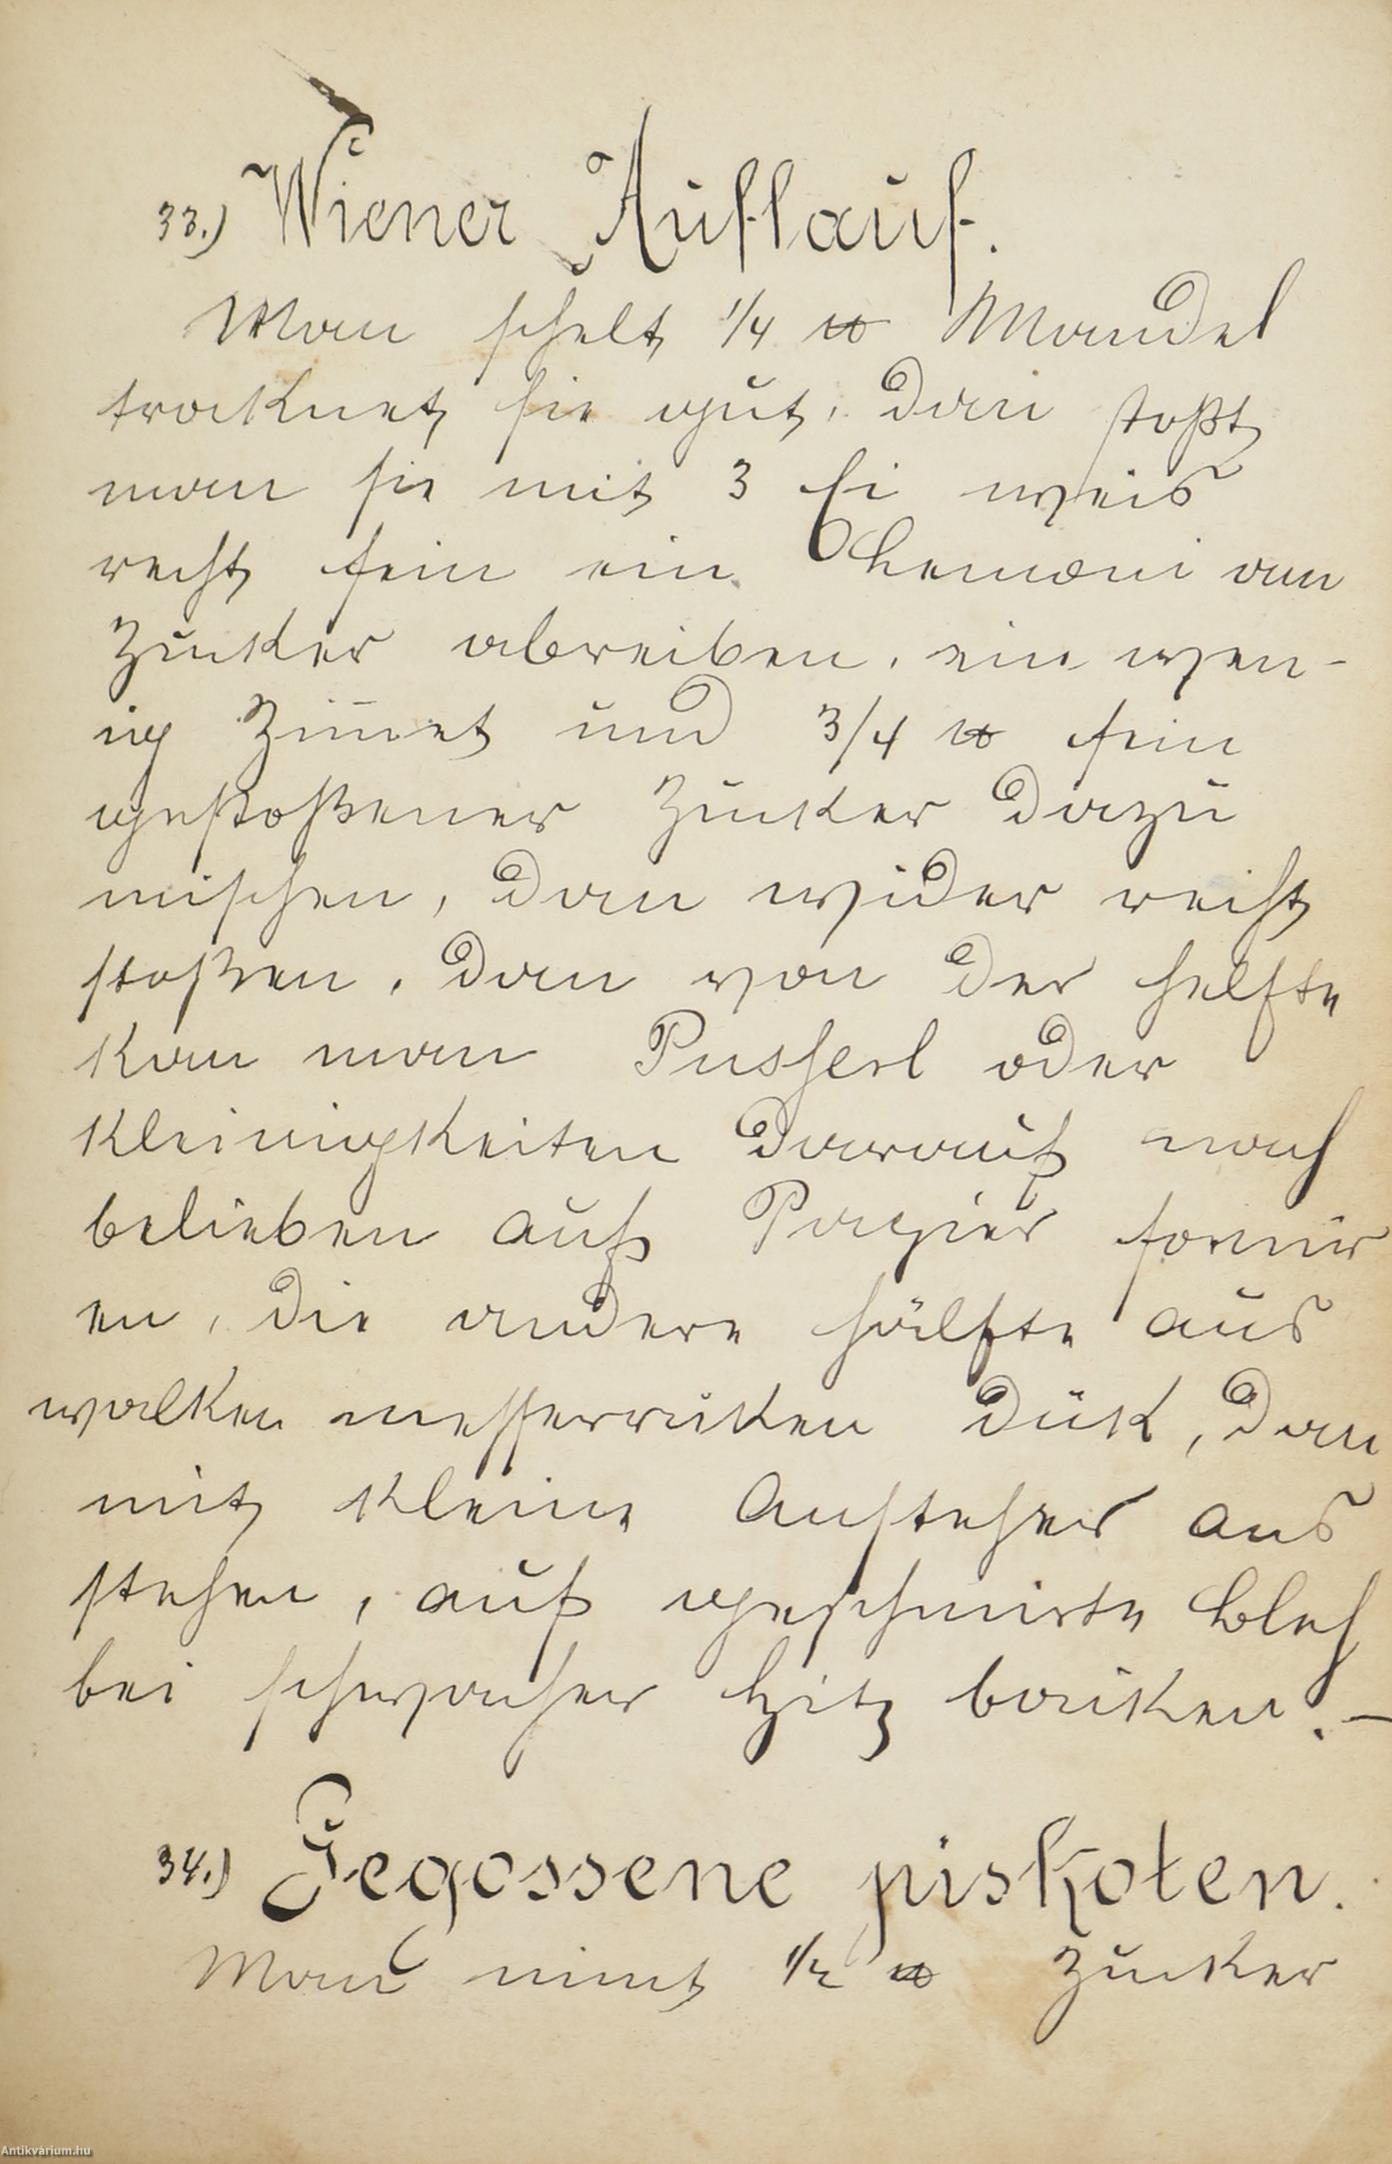 33.) Wiener Auflauf.
Man schelt 1/4 ℔ Mandel
trocknet sie gut, dan̄ stoßt
man sie mit 3 Ei weis
recht fein ein Lemoni am
Zucker abreiben, ein wen-
ig Zim̄et und 3/4 ℔ fein
gestoßener Zucker dazu
mischen, dan wider recht
stoßen, dan von der helfte
kan man Pusserl oder
kleinigkeiten darauf nach
belieben auf Papier formir
en, die andere hälfte aus
walken messerrüken dük, dan
mit kleine Austeher aus
stehen, auf geschmirte bleh
bei schwacher Hitz backen. –
34.) Gegossene piskoten.
Man nimt 1/2 ℔ Zucker
Antikvárium.hu